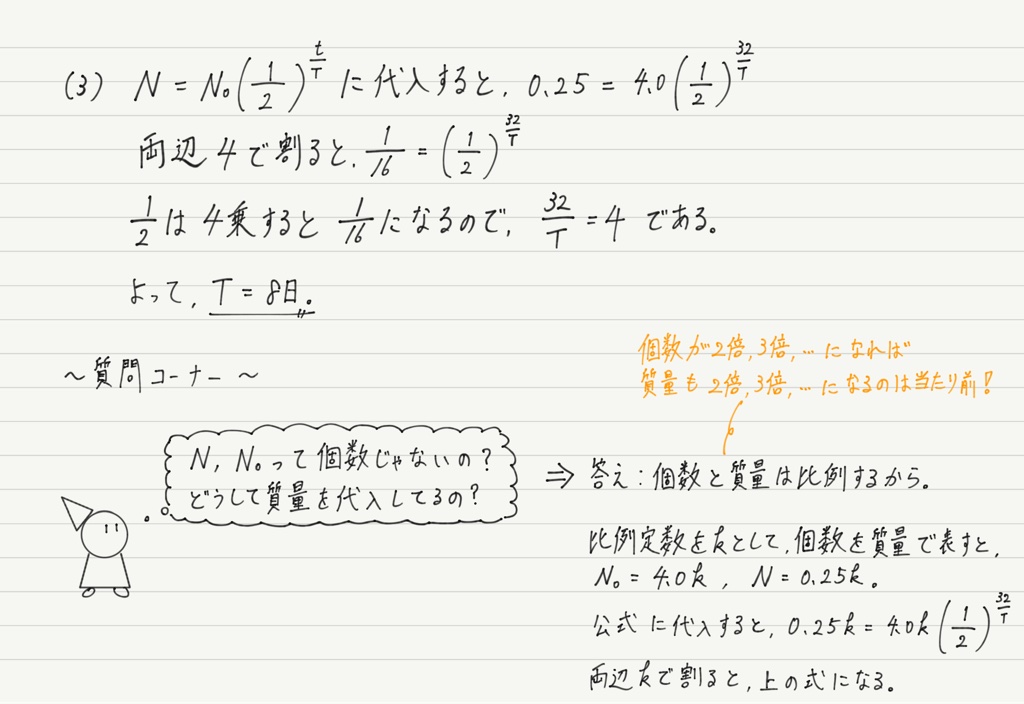 (3) N = N₀(1/2)^(t/T) に代入すると, 0.25 = 4.0(1/2)^(32/T)
両辺 4で割ると, 1/16 = (1/2)^(32/T)
1/2 は 4乗すると 1/16 になるので, 32/T = 4 である。
よって, T = 8日。
~質問コーナー~
個数が2倍, 3倍, … になれば
質量も2倍, 3倍, … になるのは当たり前!
N, N₀って個数じゃないの?
どうして質量を代入してるの?
⇒ 答え:個数と質量は比例するから。
比例定数をkとして, 個数を質量で表すと,
N₀ = 4.0k , N = 0.25k 。
公式に代入すると, 0.25k = 4.0k(1/2)^(32/T)
両辺kで割ると, 上の式になる。